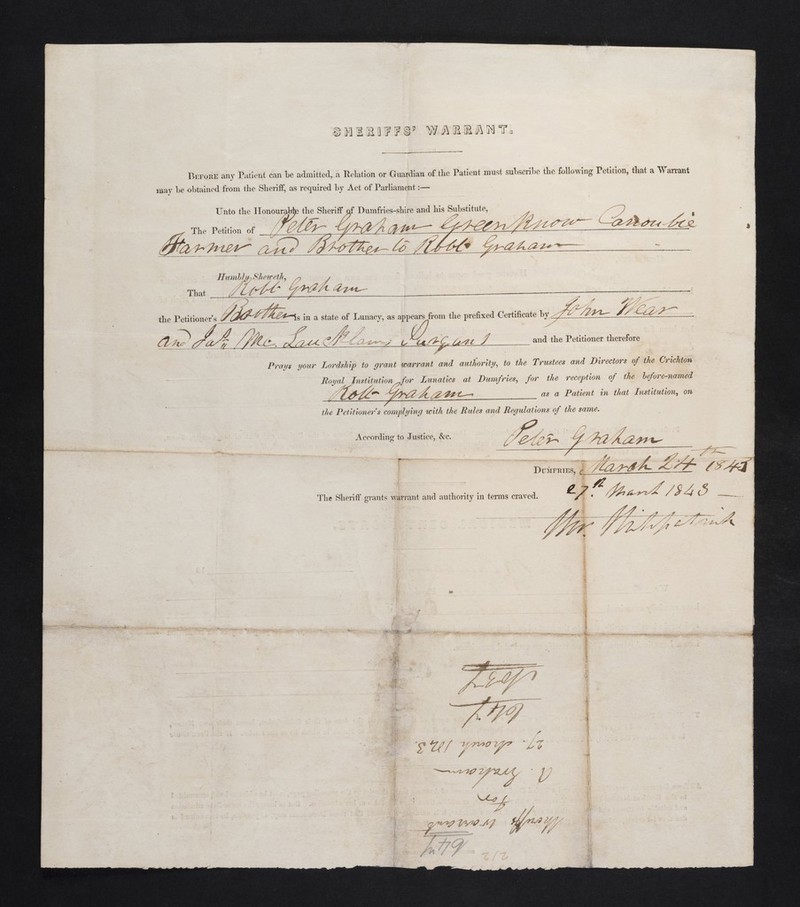 SHERIFFS' WARRANT.
BEFORE any Patient can be admitted, a Relation or Guardian of the Patient must subscribe the following Petition, that a Warrant
may be obtained from the Sheriff, as required by Act of Parliament :—
Unto the Honourable the Sheriff of Dumfries-shire and his Substitute,
The Petition of Peter Graham Greenknow Canoubie
Farmer and Brother to Robt Graham
Humbly Sheweth,
That Robt Graham
the Petitioner's Brother is in a state of Lunacy, as appears from the prefixed Certificate by John Wear
and Jas Mc Lauchlan Surgans and the Petitioner therefore
Prays your Lordship to grant warrant and authority, to the Trustees and Directors of the Crichton
Royal Institution for Lunatics at Dumfries, for the reception of the before-named
Robt Graham as a Patient in that Institution, on
the Petitioner's complying with the Rules and Regulations of the same.
According to Justice, &c. Peter Graham
DUMFRIES, March 24th 1843
The Sheriff grants warrant and authority in terms craved. 27th March 1843
Kirkpatrick
647
Sheriffs Warrant
for
R. Graham
27. March 1843.
647